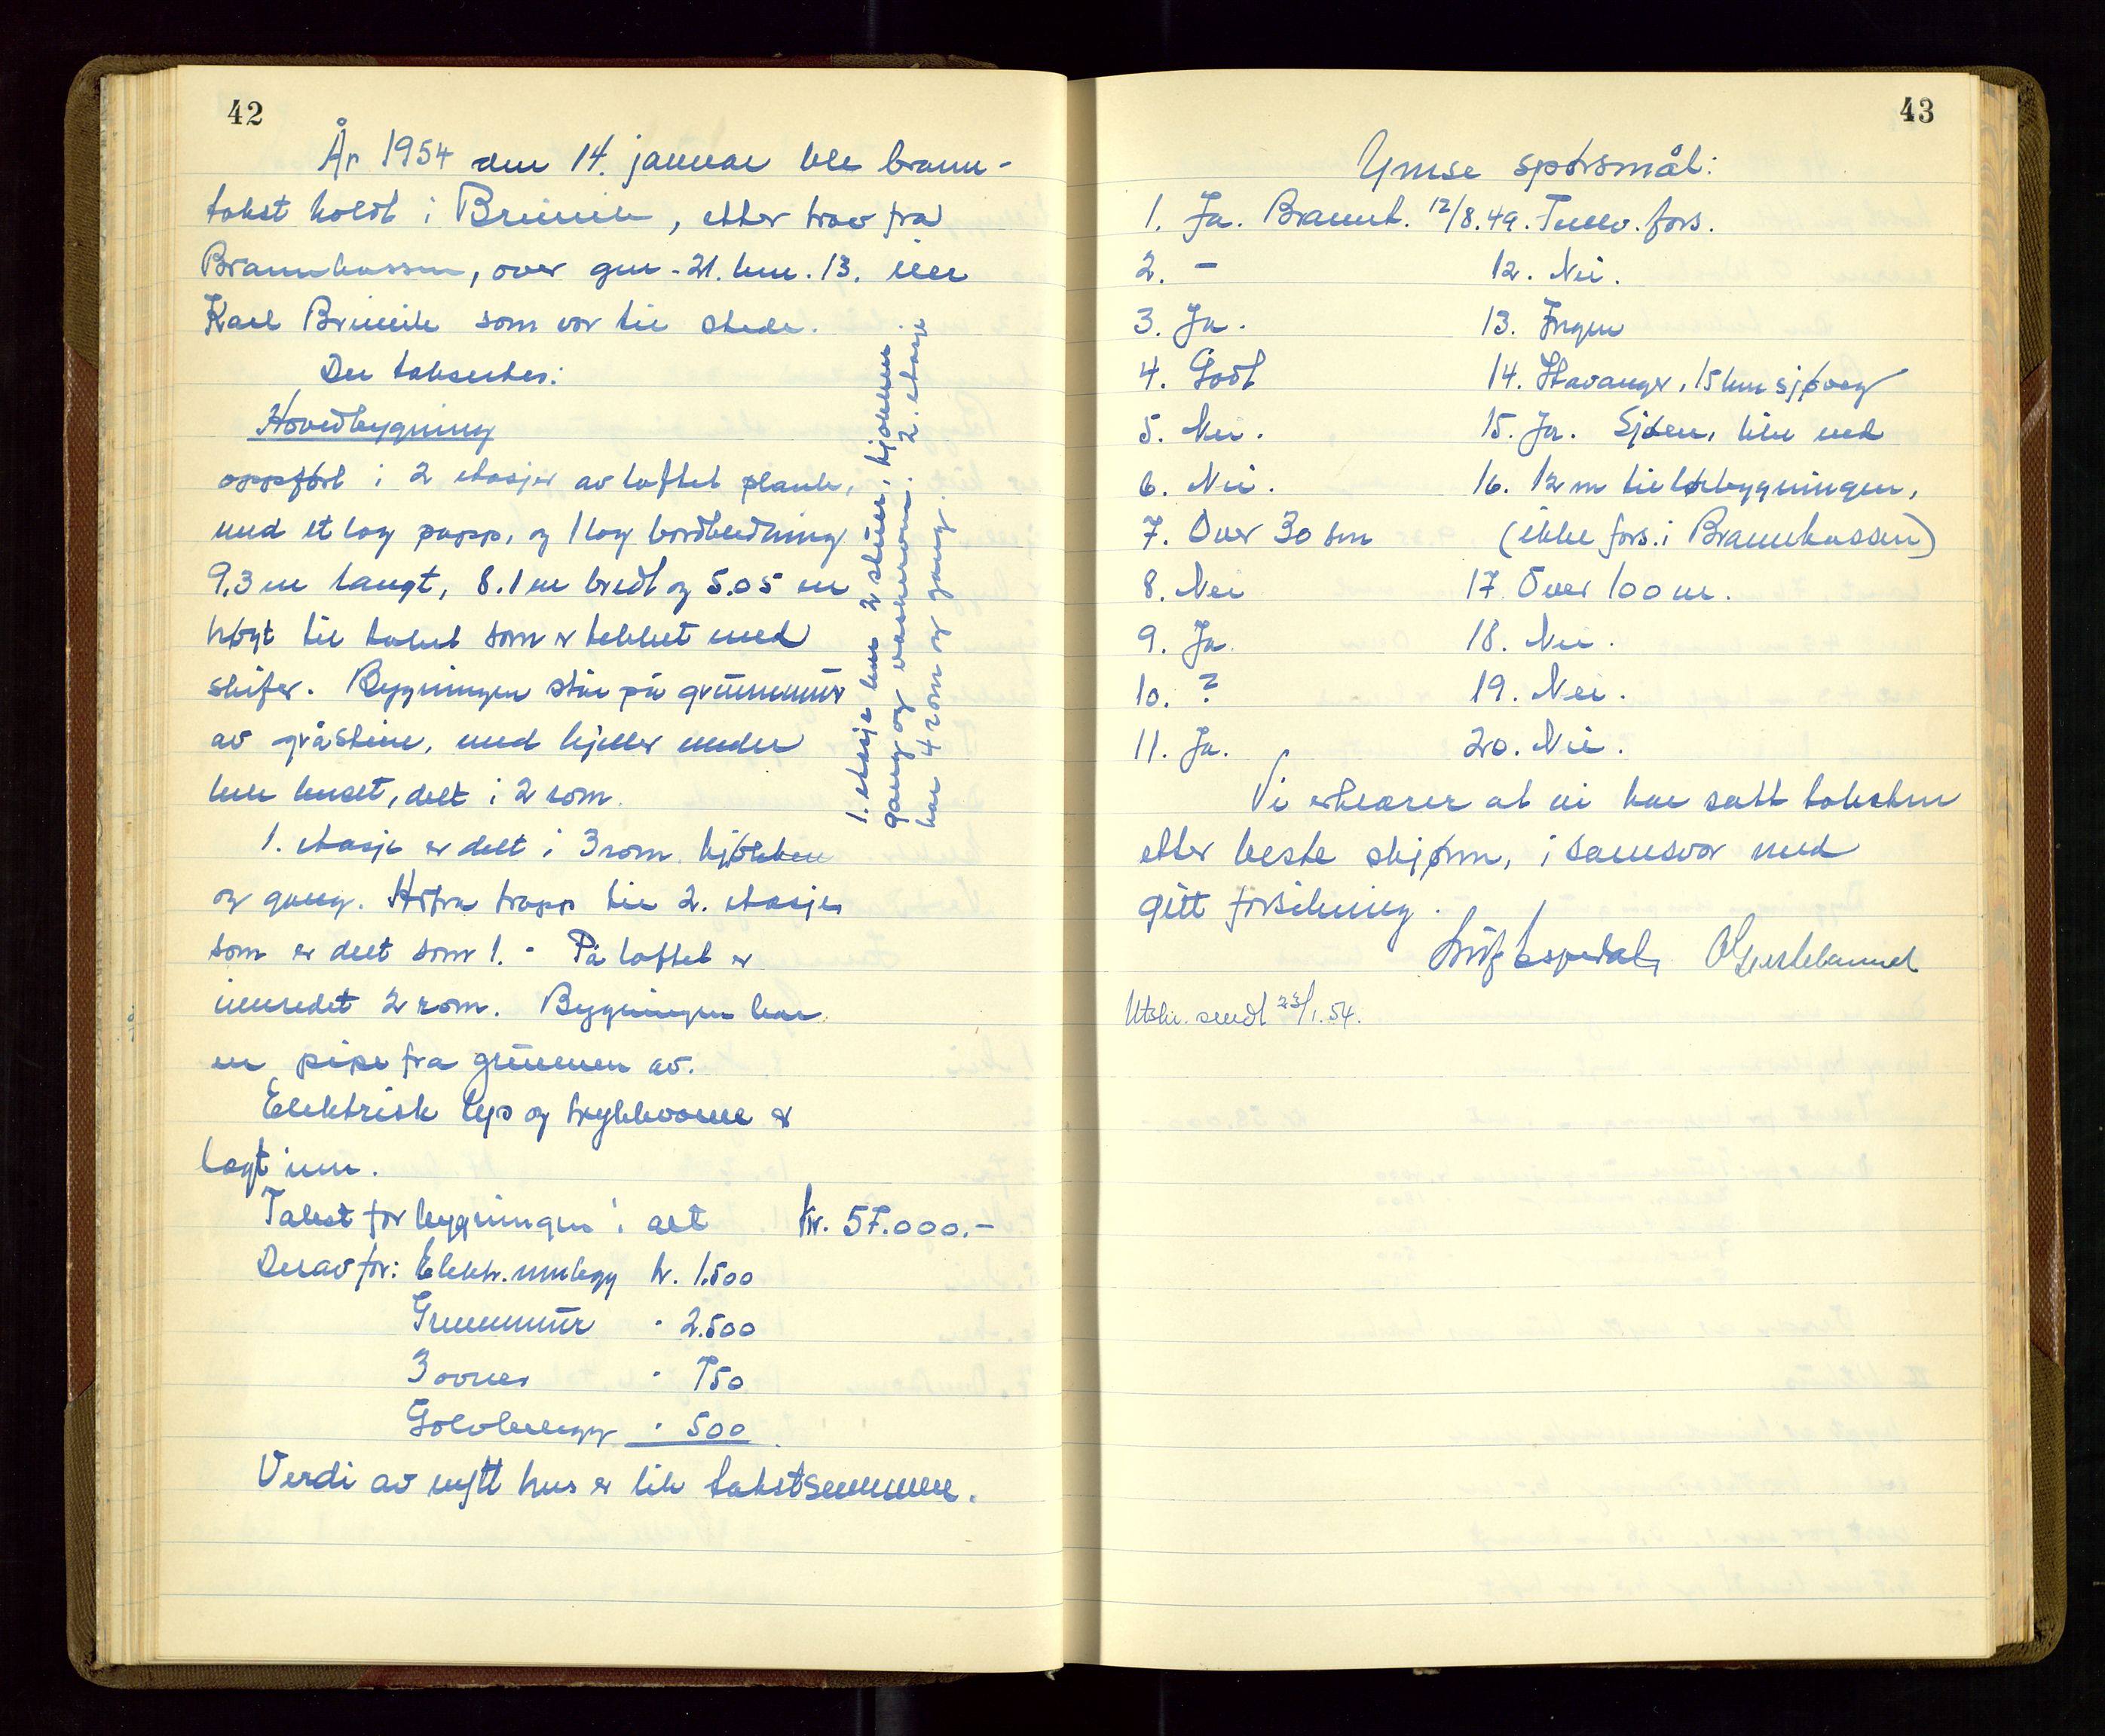 42
År 1954 den 14. januar ble brann-
takst holdt i Brimile, etter krav fra
Brannkassen, over gnr. 21. bnr. 13. eier
Karl Brimile som var til stede.
Der takseertes:
Hovedbygning
oppført i 2 etasjer av laftet plank,
med et lag papp, og 1 lag bordkledning
9,3 m langt, 8.1 m bredt og 5.05 m
høgt til taket som er tekket med
skifer. Bygningen står på grunnmur
av gråsteine, med kjeller under
hele huset, delt i 2 rom.
1. etasje er delt i 3 rom. kjøkken
og gang. Herfra trapp til 2. etasje
som er delt som 1. - På loftet er
innredet 2 rom. Bygningen har
en pipe fra grunnen av.
Elektrisk lys og trykkvann er
lagt inn.
Takst for bygningen i alt kr. 57.000.-
Derav for: Elektr. innlegg kr. 1.500
Grunnmur " 2.500
3 ovner " 750
Golvbelegg " 500
Verdi av nytt hus er lik takstsummen.
1. etasje har 2 stuer, kjøkken
gang og vaskerom. 2. etasje
har 4 rom og gang.
43
Ymse spørsmål:
1. Ja. Brannt. 12/8.49. Tvillv. fors.
2. -
3. Ja.
4. Godt
5. Nei.
6. Nei.
7. Over 30 sm
8. Nei
9. Ja.
10. ?
11. Ja.
12. Nei.
13. Ingen
14. Stavanger, 15 km sjøveg
15. Ja. Sjøen, like ved
16. 12 m til løbygningen,
(ikke fors. i Brannkassen)
17. Over 100 m.
18. Nei.
19. Nei.
20. Nei.
Vi erklærer at vi har satt taksten
etter beste skjønn, i samsvar med
gitt forsikring.
Espedal,
Utskr. sendt 23/1.54.